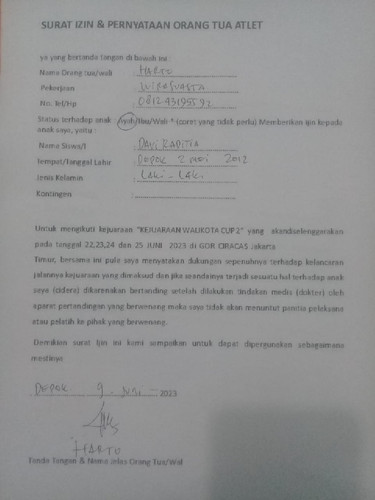 SURAT IZIN & PERNYATAAN ORANG TUA ATLET
ya yang bertanda tangan di bawah ini :
Nama Orang tua/wali : HARTO
Pekerjaan : WIRASWASTA
No. Tel/Hp
Status terhadap anak : Ayah/Ibu/Wali * (coret yang tidak perlu) Memberikan Ijin kepada
anak saya, yaitu :
Nama Siswa/i
Tempat/Tanggal Lahir : DEPOK 2 MEI 2012
Jenis Kelamin : LAKI - LAKI
Kontingen :
Untuk mengikuti kejuaraan "KEJUARAAN WALIKOTA CUP 2" yang akandiselenggarakan
pada tanggal 22,23,24 dan 25 JUNI 2023 di GOR CIRACAS Jakarta
Timur, bersama ini pula saya menyatakan dukungan sepenuhnya terhadap kelancaran
jalannya kejuaraan yang dimaksud dan jika seandainya terjadi sesuatu hal terhadap anak
saya (cidera) dikarenakan bertanding setelah dilakukan tindakan medis (dokter) oleh
aparat pertandingan yang berwenang maka saya tidak akan menuntut panitia pelaksana
atau pelatih ke pihak berwenang.
Demikian surat Ijin ini kami sampaikan untuk dapat dipergunakan sebagaimana
mestinya
DEPOK 9 - JUNI - 2023
HARTO
Tanda Tangan & Nama Jelas Orang Tua/Wal